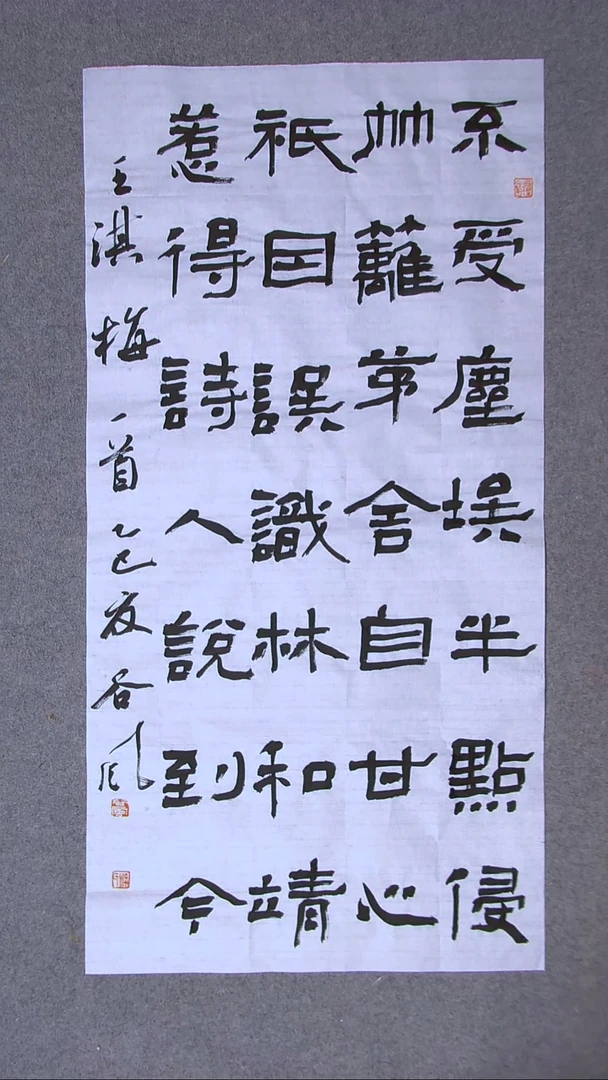 不受塵埃半點侵
竹籬茅舍自甘心
祇因誤識林和靖
惹得詩人說到今
王淇梅一首乙巳夏谷風